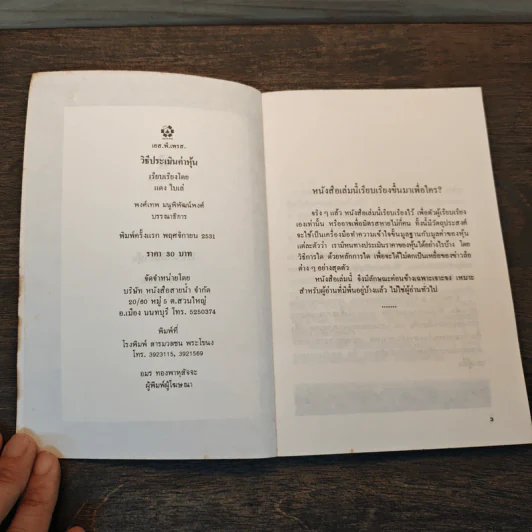 เอส.พี.เพรส.
วิธีประเมินค่าหุ้น
เรียบเรียงโดย
แดง ใบเล่
พงศ์เทพ มนูพิพัฒน์พงศ์
บรรณาธิการ
พิมพ์ครั้งแรก พฤศจิกายน 2531
ราคา 30 บาท
จัดจำหน่ายโดย
บริษัท หนังสือสายน้ำ จำกัด
20/80 หมู่ 5 ต.สวนใหญ่
อ.เมือง นนทบุรี โทร. 5250374
พิมพ์ที่
โรงพิมพ์ สารมวลชน พระโขนง
โทร. 3923115, 3921569
อมร ทองพาหุสัจจะ
ผู้พิมพ์ผู้โฆษณา
หนังสือเล่มนี้เรียบเรียงขึ้นมาเพื่อใคร?
จริง ๆ แล้ว หนังสือเล่มนี้เรียบเรียงไว้ เพื่อตัวผู้เรียบเรียง
เองเท่านั้น หรืออาจเพื่อมิตรสหายไม่กี่คน ทั้งนี้มีวัตถุประสงค์
จะใช้เป็นเครื่องมือทำความเข้าใจขั้นมูลฐานกับมูลค่าของหุ้น
แต่ละตัวว่า เรามีหนทางประเมินราคาของหุ้นได้อย่างไรบ้าง โดย
วิธีการใด ด้วยหลักการใด เพื่อจะได้ไม่ตกเป็นเหยื่อของข่าวลือ
ต่าง ๆ อย่างสุดตัว
หนังสือเล่มนี้ จึงมีลักษณะค่อนข้างเฉพาะเจาะจง เหมาะ
สำหรับผู้อ่านที่มีพื้นอยู่บ้างแล้ว ไม่ใช่ผู้อ่านทั่วไป
........
3